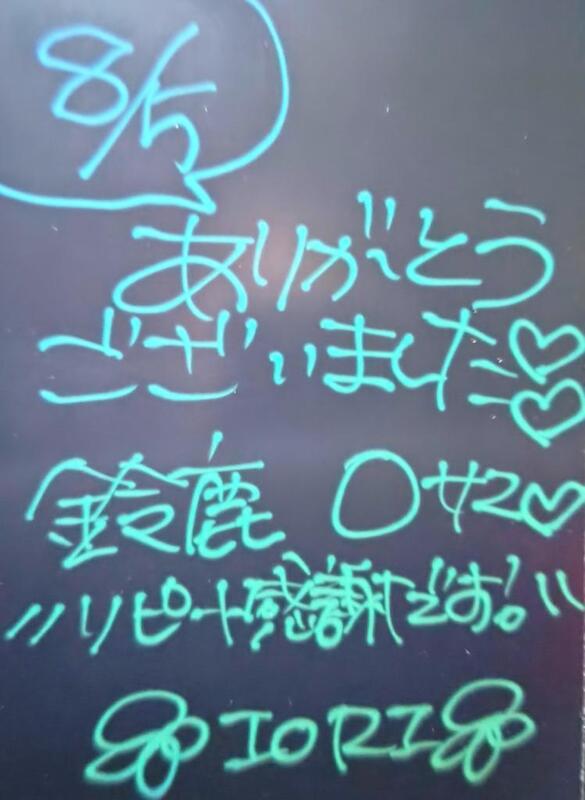 8/5
ありがとう
ございました♡♡
鈴鹿 〇サマ♡
〃リピート感謝です!〃
IORI